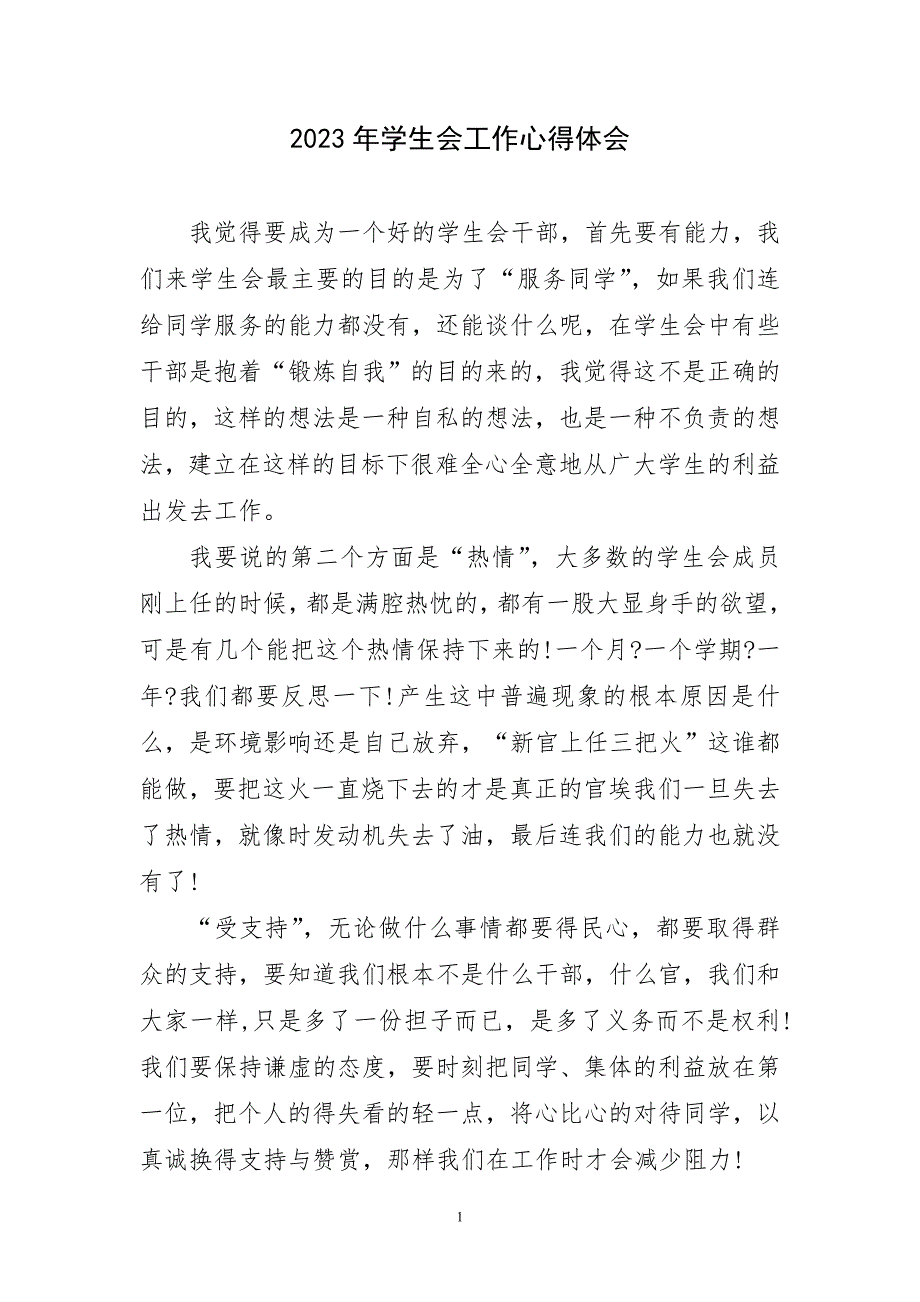 2023 年学生会工作心得体会
我觉得要成为一个好的学生会干部，首先要有能力，我
们来学生会最主要的目的是为了“服务同学”，如果我们连
给同学服务的能力都没有，还能谈什么呢，在学生会中有些
干部是抱着“锻炼自我”的目的来的，我觉得这不是正确的
目的，这样的想法是一种自私的想法，也是一种不负责的想
法，建立在这样的目标下很难全心全意地从广大学生的利益
出发去工作。
我要说的第二个方面是“热情”，大多数的学生会成员
刚上任的时候，都是满腔热忱的，都有一股大显身手的欲望，
可是有几个能把这个热情保持下来的!一个月?一个学期?一
年?我们都要反思一下!产生这中普遍现象的根本原因是什
么，是环境影响还是自己放弃，“新官上任三把火”这谁都
能做，要把这火一直烧下去的才是真正的官埃我们一旦失去
了热情，就像时发动机失去了油，最后连我们的能力也就没
有了!
“受支持”，无论做什么事情都要得民心，都要取得群
众的支持，要知道我们根本不是什么干部，什么官，我们和
大家一样,只是多了一份担子而已，是多了义务而不是权利!
我们要保持谦虚的态度，要时刻把同学、集体的利益放在第
一位，把个人的得失看的轻一点，将心比心的对待同学，以
真诚换得支持与赞赏，那样我们在工作时才会减少阻力!
1